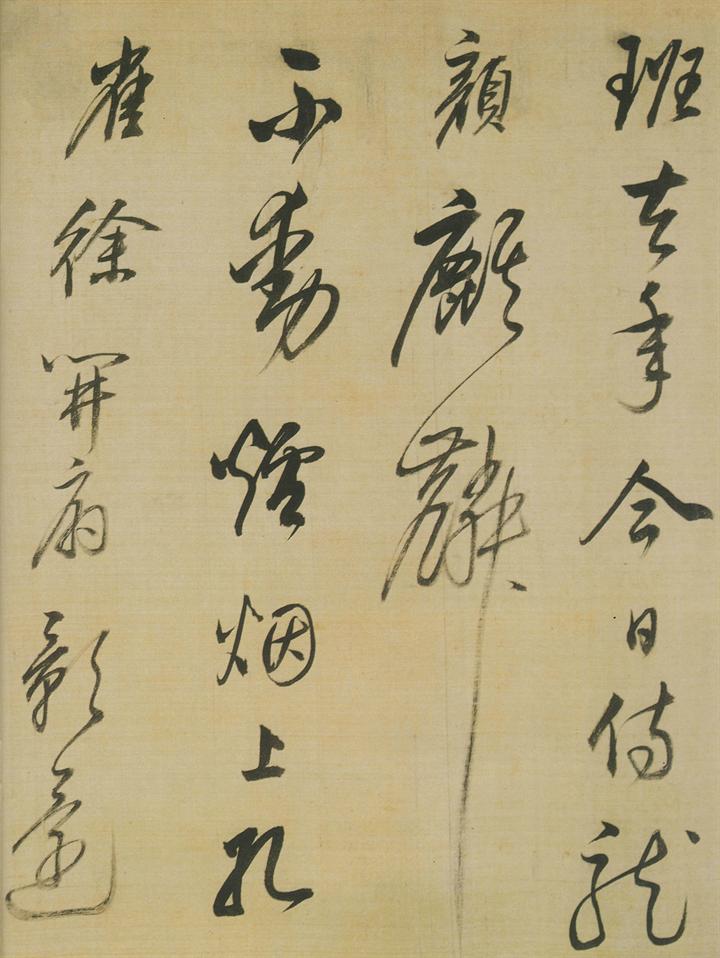 班去年今日侍龍
顏麒麟
不動爐烟上孔
雀徐開扇影還